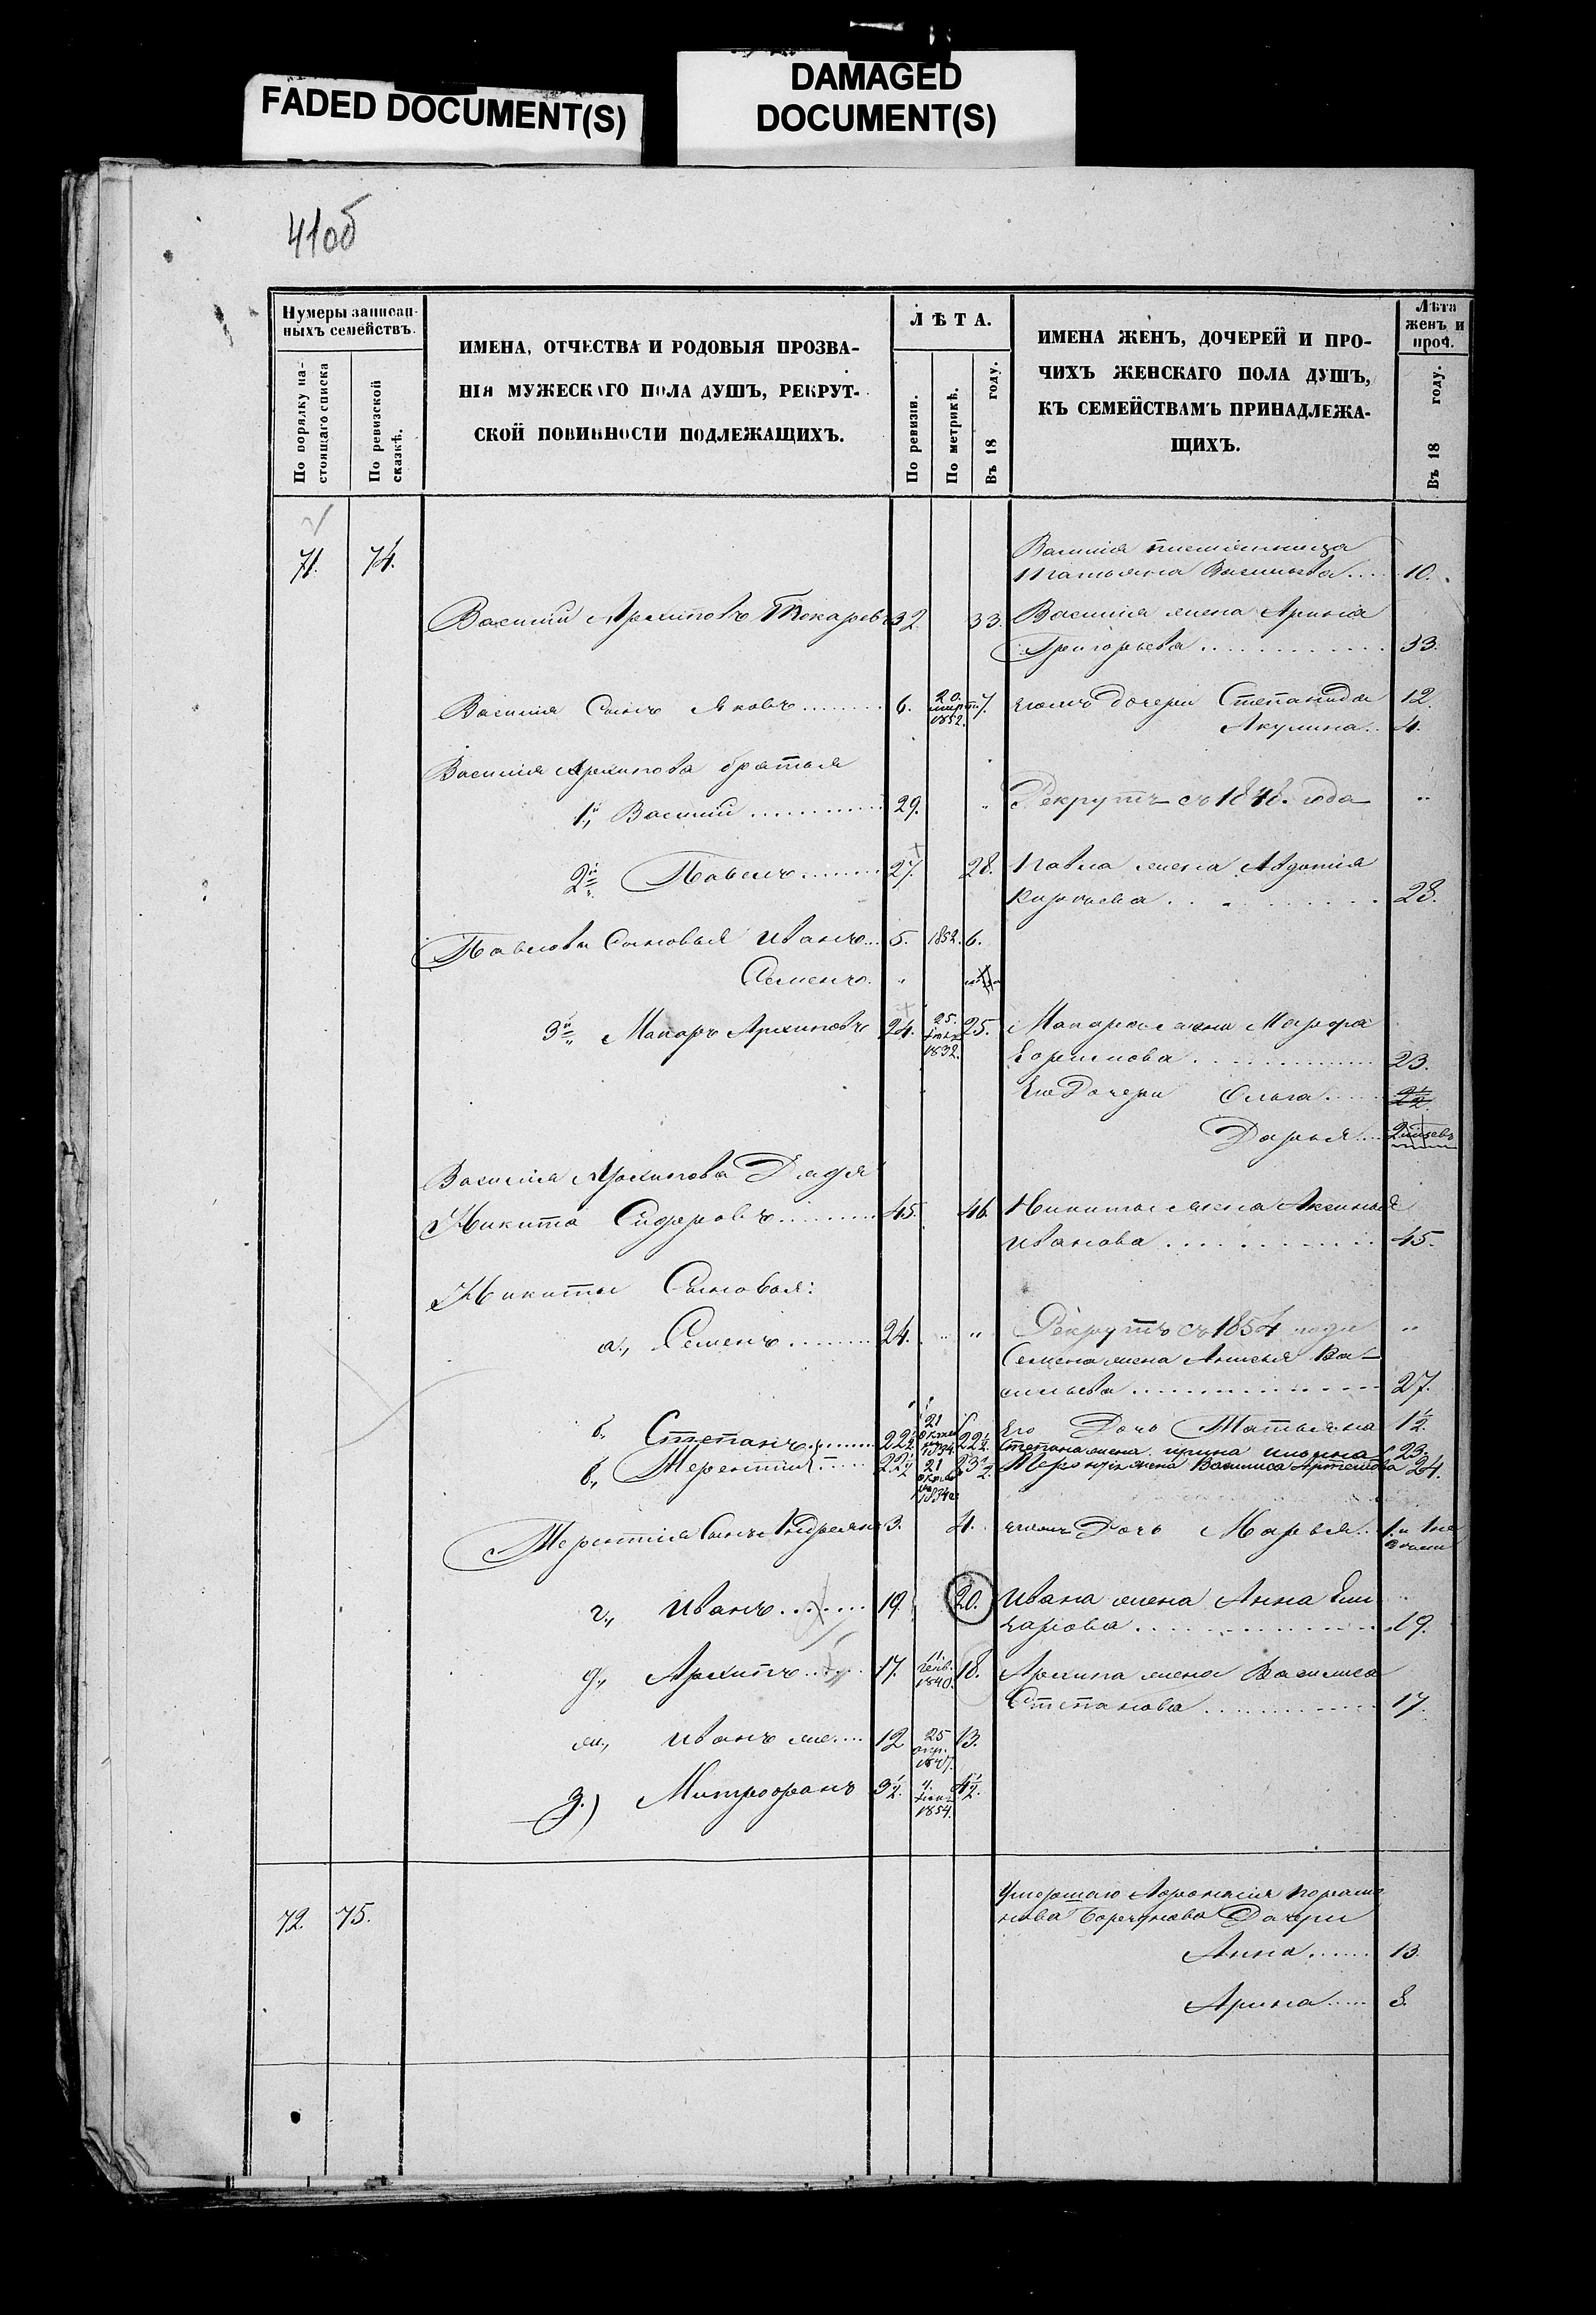 FADED DOCUMENT(S)
DAMAGED
DOCUMENT(S)
41об
Нумеры записан-
ныхъ семействъ.
По порядку на-
стоящаго списка
По ревизской
сказкѣ.
ИМЕНА, ОТЧЕСТВА И РОДОВЫЯ ПРОЗВА-
НІЯ МУЖЕСКАГО ПОЛА ДУШЪ, РЕКРУТ-
СКОЙ ПОВИННОСТИ ПОДЛЕЖАЩИХЪ.
ЛѢТА.
По ревизіи.
По метрикѣ.
Въ 18 году.
ИМЕНА ЖЕНЪ, ДОЧЕРЕЙ И ПРО-
ЧИХЪ ЖЕНСКАГО ПОЛА ДУШЪ,
КЪ СЕМЕЙСТВАМЪ ПРИНАДЛЕЖА-
ЩИХЪ.
Лѣта
женъ и
проч.
Въ 18 году.
71. 74. Василія племянница
Татьяна Васильева.... 10.
Василій Архиповъ Токаревъ 32. 33. Василія жена Арина
Григорьева ............ 33.
Василія Сынъ Яковъ ........ 6. 20. марта 1852. 7. дочери Степанида 12.
Акулина.. 4.
Василія Архипова братья
1й Василій ............ 29. " Рекрутъ съ 1848. года "
2й Павелъ ........ 27. 28. Павла жена Авдотья
.......... 28.
Павловы Сыновья Иванъ... 5. 1852. 6.
Семенъ. "
3й Макаръ Архиповъ 24. 25. 1832. 25. Макара жена Марфа
Ефимова ............ 23.
Его Дочери Ольга..... 2½
Дарья...
Василія Архипова Дядя
Никита Сидоровъ ......... 45. 46. Никиты жена Аксинья
Иванова ............ 45.
Никиты Сыновья:
а., Семенъ ......... 24. " Рекрутъ съ 1854 года "
Семена жена Ва-
сильева ............... 27.
б. Степанъ ........ 22½ 21 1834 22½. Его Дочь Татьяна 1½
Степана жена Ирина 23.
в., Терентій ...... 22½ 21 1834 23½. жена Василиса Артемова 24.
Терентія Сынъ Андреянъ 3. 4. Дочь Марья.. 1.
г., Иванъ ...... 19. 20. Ивана жена Анна Ели-
зарова ............... 19.
д., Архипъ ...... 17. 11. генв. 1840. 18. Архипа жена Василиса
Степанова ............ 17.
Иванъ ме.... 12 25 13.
з.) Митрофанъ 3½. 4. 1854. 4½.
72. 75. Умершаго Афонасія
Дочери
Анна ...... 13.
Арина ..... 8.